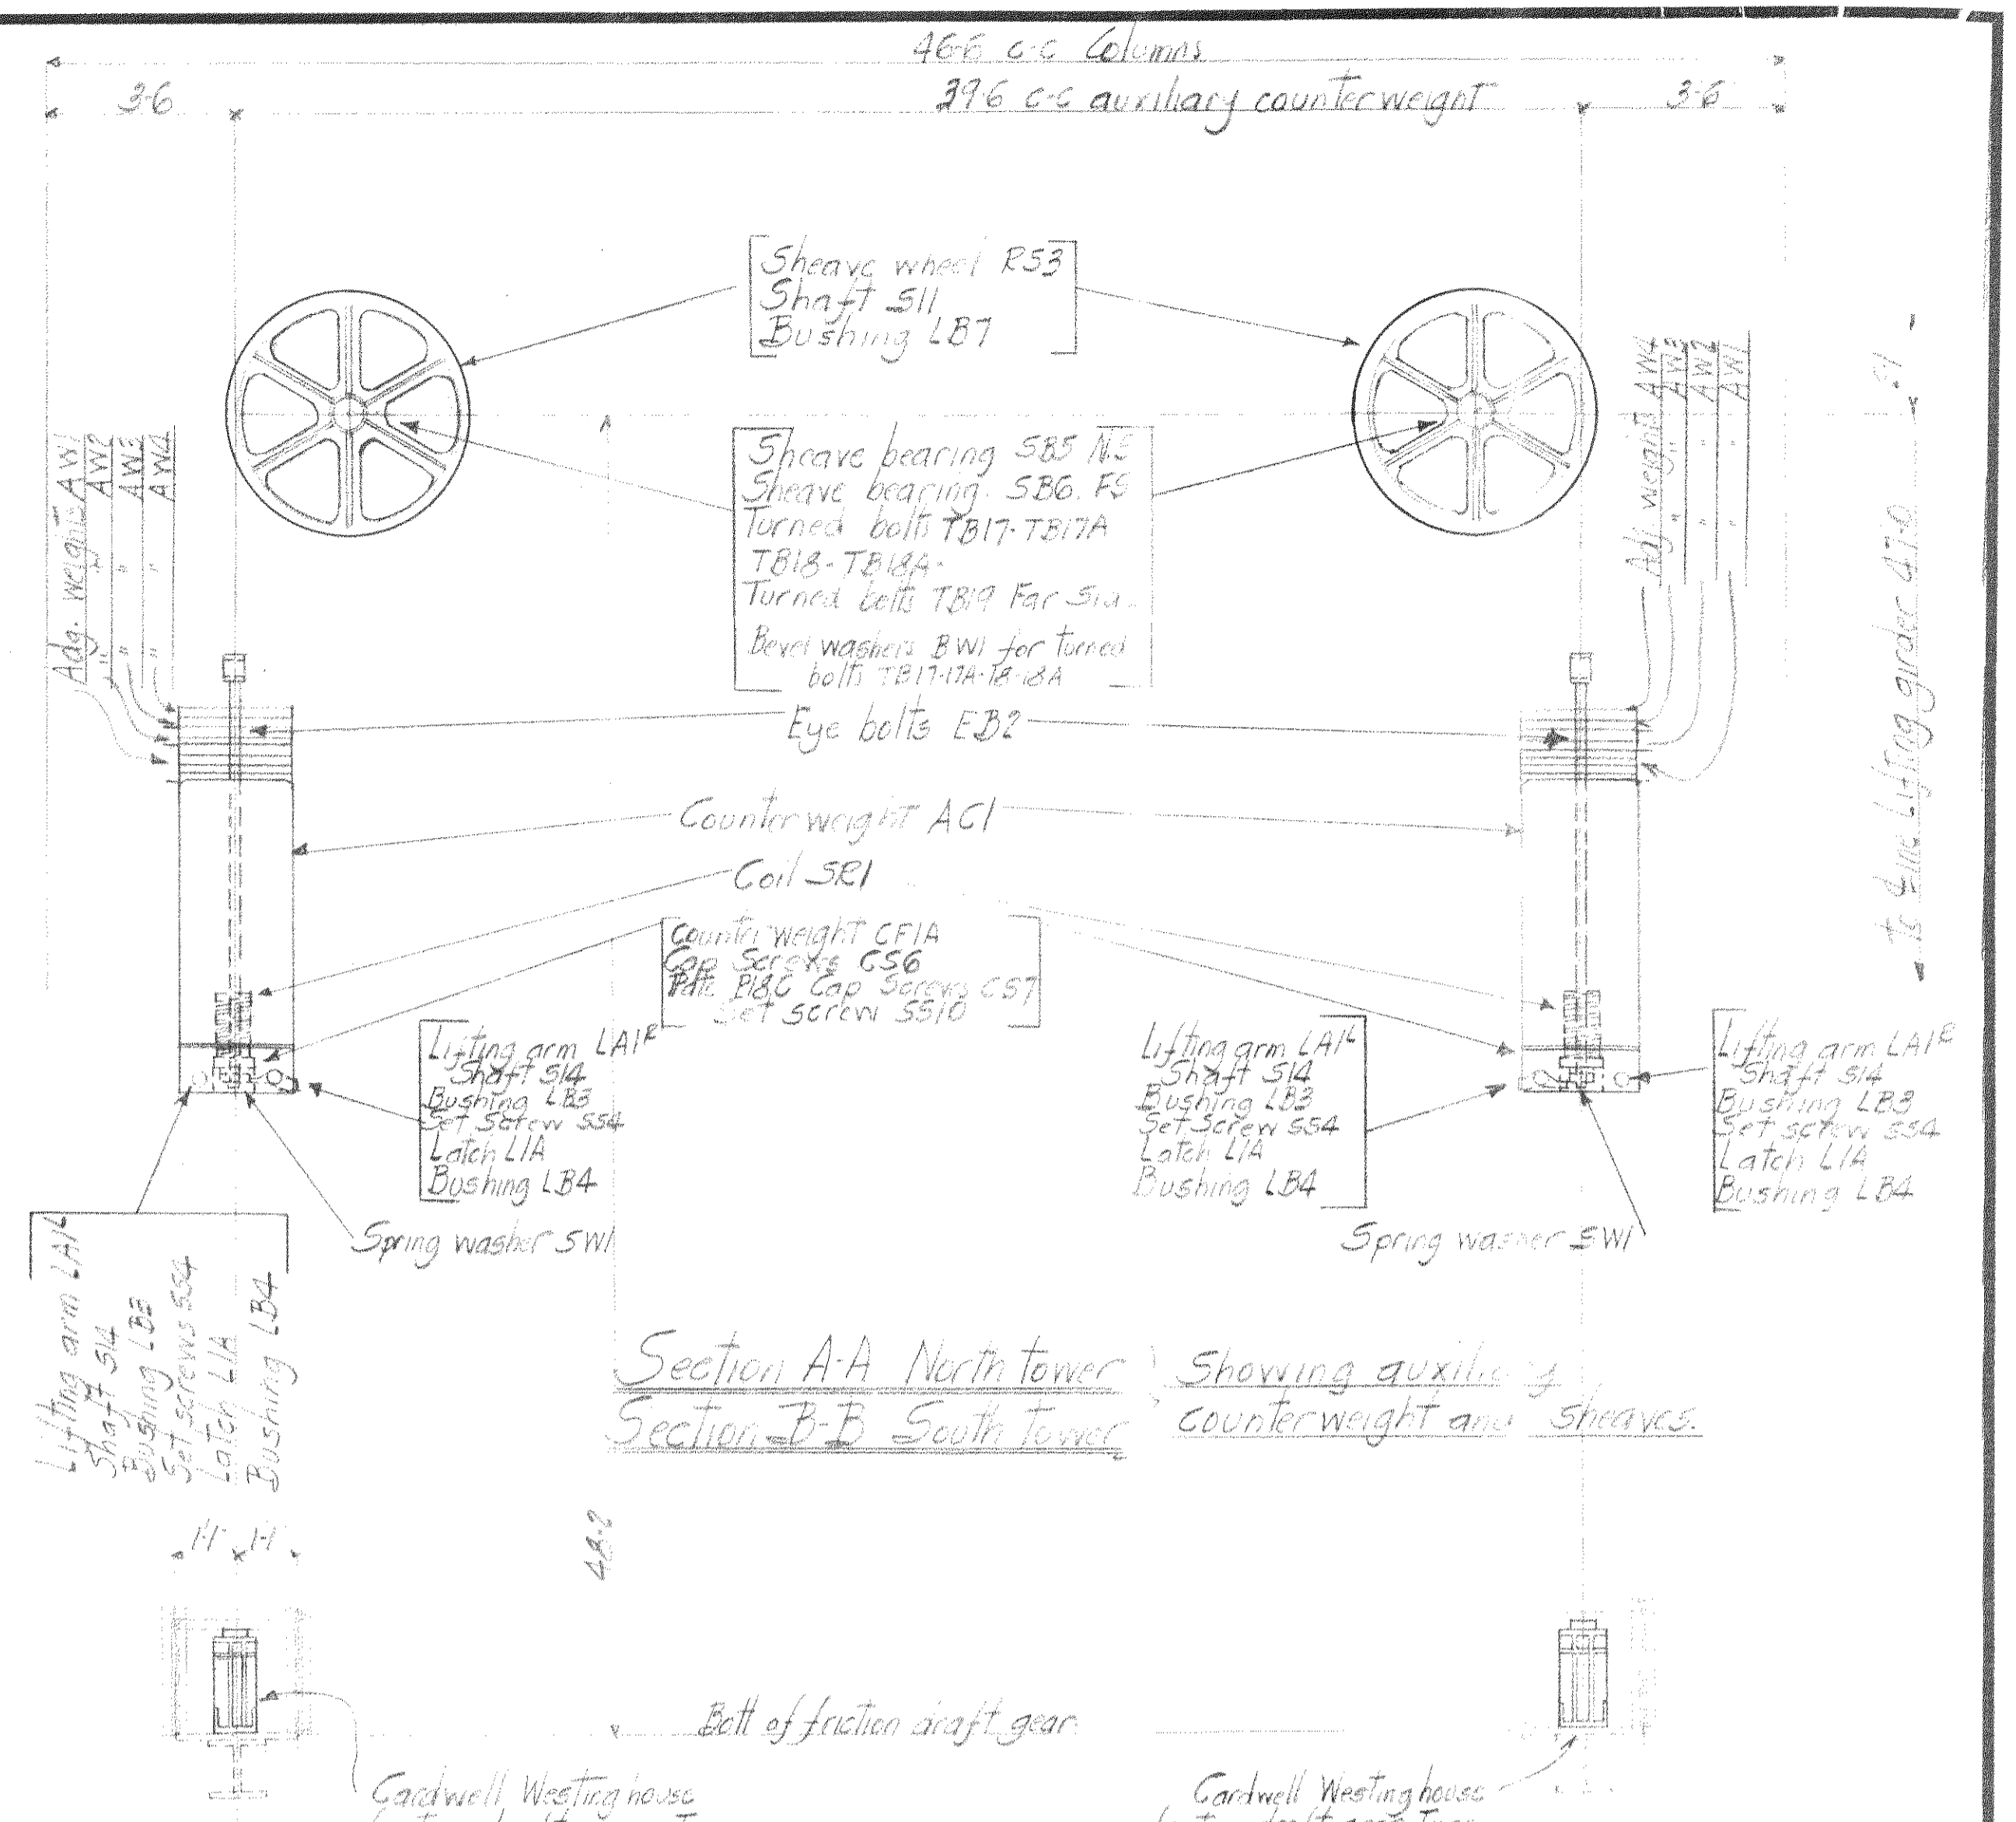 46-6 c-c Columns
3-6
39-6 c-c auxiliary counterweight
3-6
Sheave wheel RS3
Shaft S11
Bushing LB7
Sheave bearing SB5 N.S
Sheave bearing. SB6. FS
Turned bolts TB17-TB17A
TB18-TB18A-
Turned bolts TB19 Far
Bevel washers BW1 for turned
bolts TB17-17A-18-18A
Adg. weights AW1
" " AW2
" " AW3
" " AW4
Adj. weights AW4
" " AW3
" " AW2
" " AW1
Lifting girder 47-0
Eye bolts EB2
Counterweight AC1
Coil SR1
Counterweight CF1A
Cap Screws CS6
P18C Cap Screws CS7
Set screw SS10
Lifting arm LA1R
Shaft S14
Bushing LB3
Set Screw SS4
Latch L1A
Bushing LB4
Lifting arm LA1L
Shaft S14
Bushing LB3
Set Screw SS4
Latch L1A
Bushing LB4
Lifting arm LA1R
Shaft S14
Bushing LB3
Set screw SS4
Latch L1A
Bushing LB4
Spring washer SW1
Spring washer SW1
Lifting arm LA1L
Shaft S14
Bushing LB3
Set screws SS4
Latch L1A
Bushing LB4
Section A-A North tower
Section B-B South Tower
Showing auxiliary
counterweight and sheaves.
1-1 1-1
48-2
Bott of friction draft gear
Cardwell Westinghouse
Cardwell Westinghouse